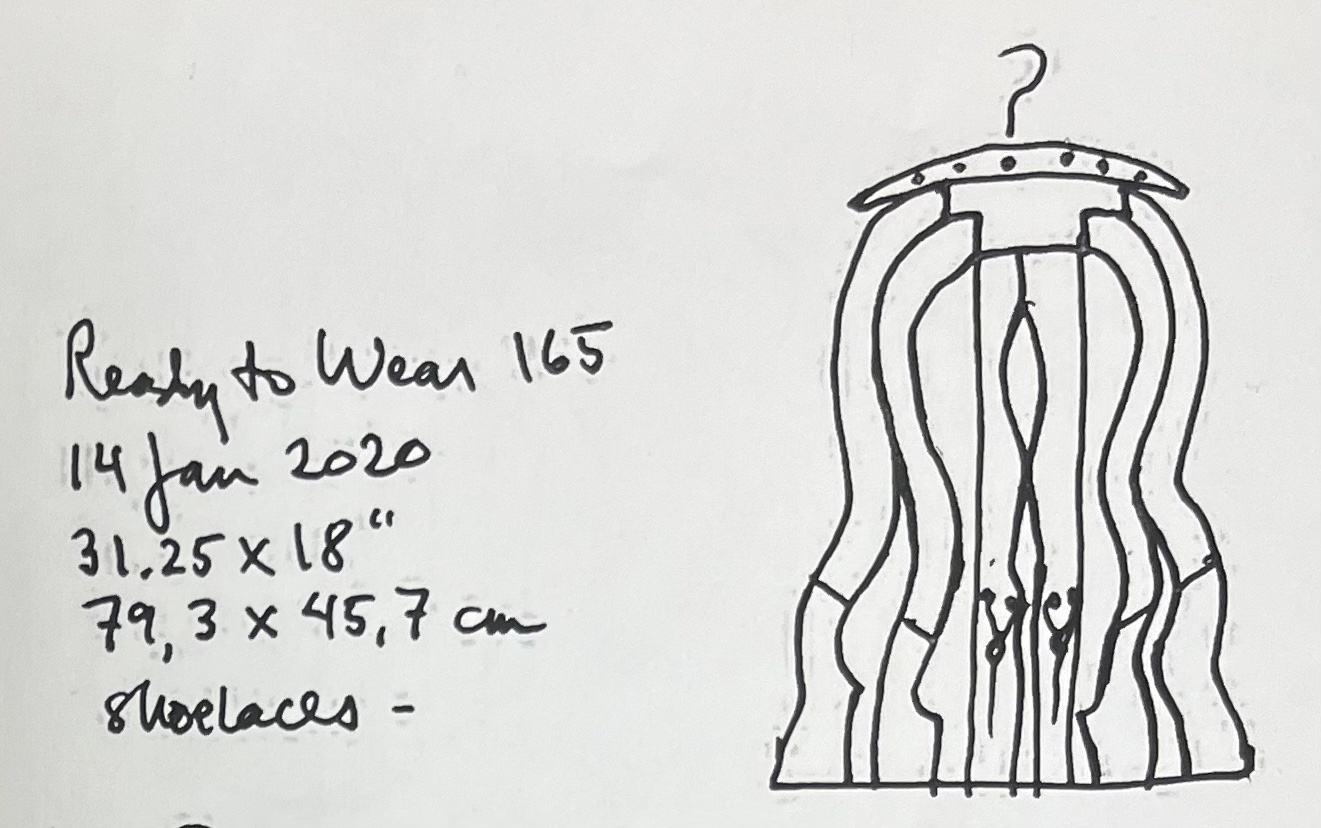 Ready to Wear 165
14 Jan 2020
31.25 x 18"
79,3 x 45,7 cm
shoelaces -